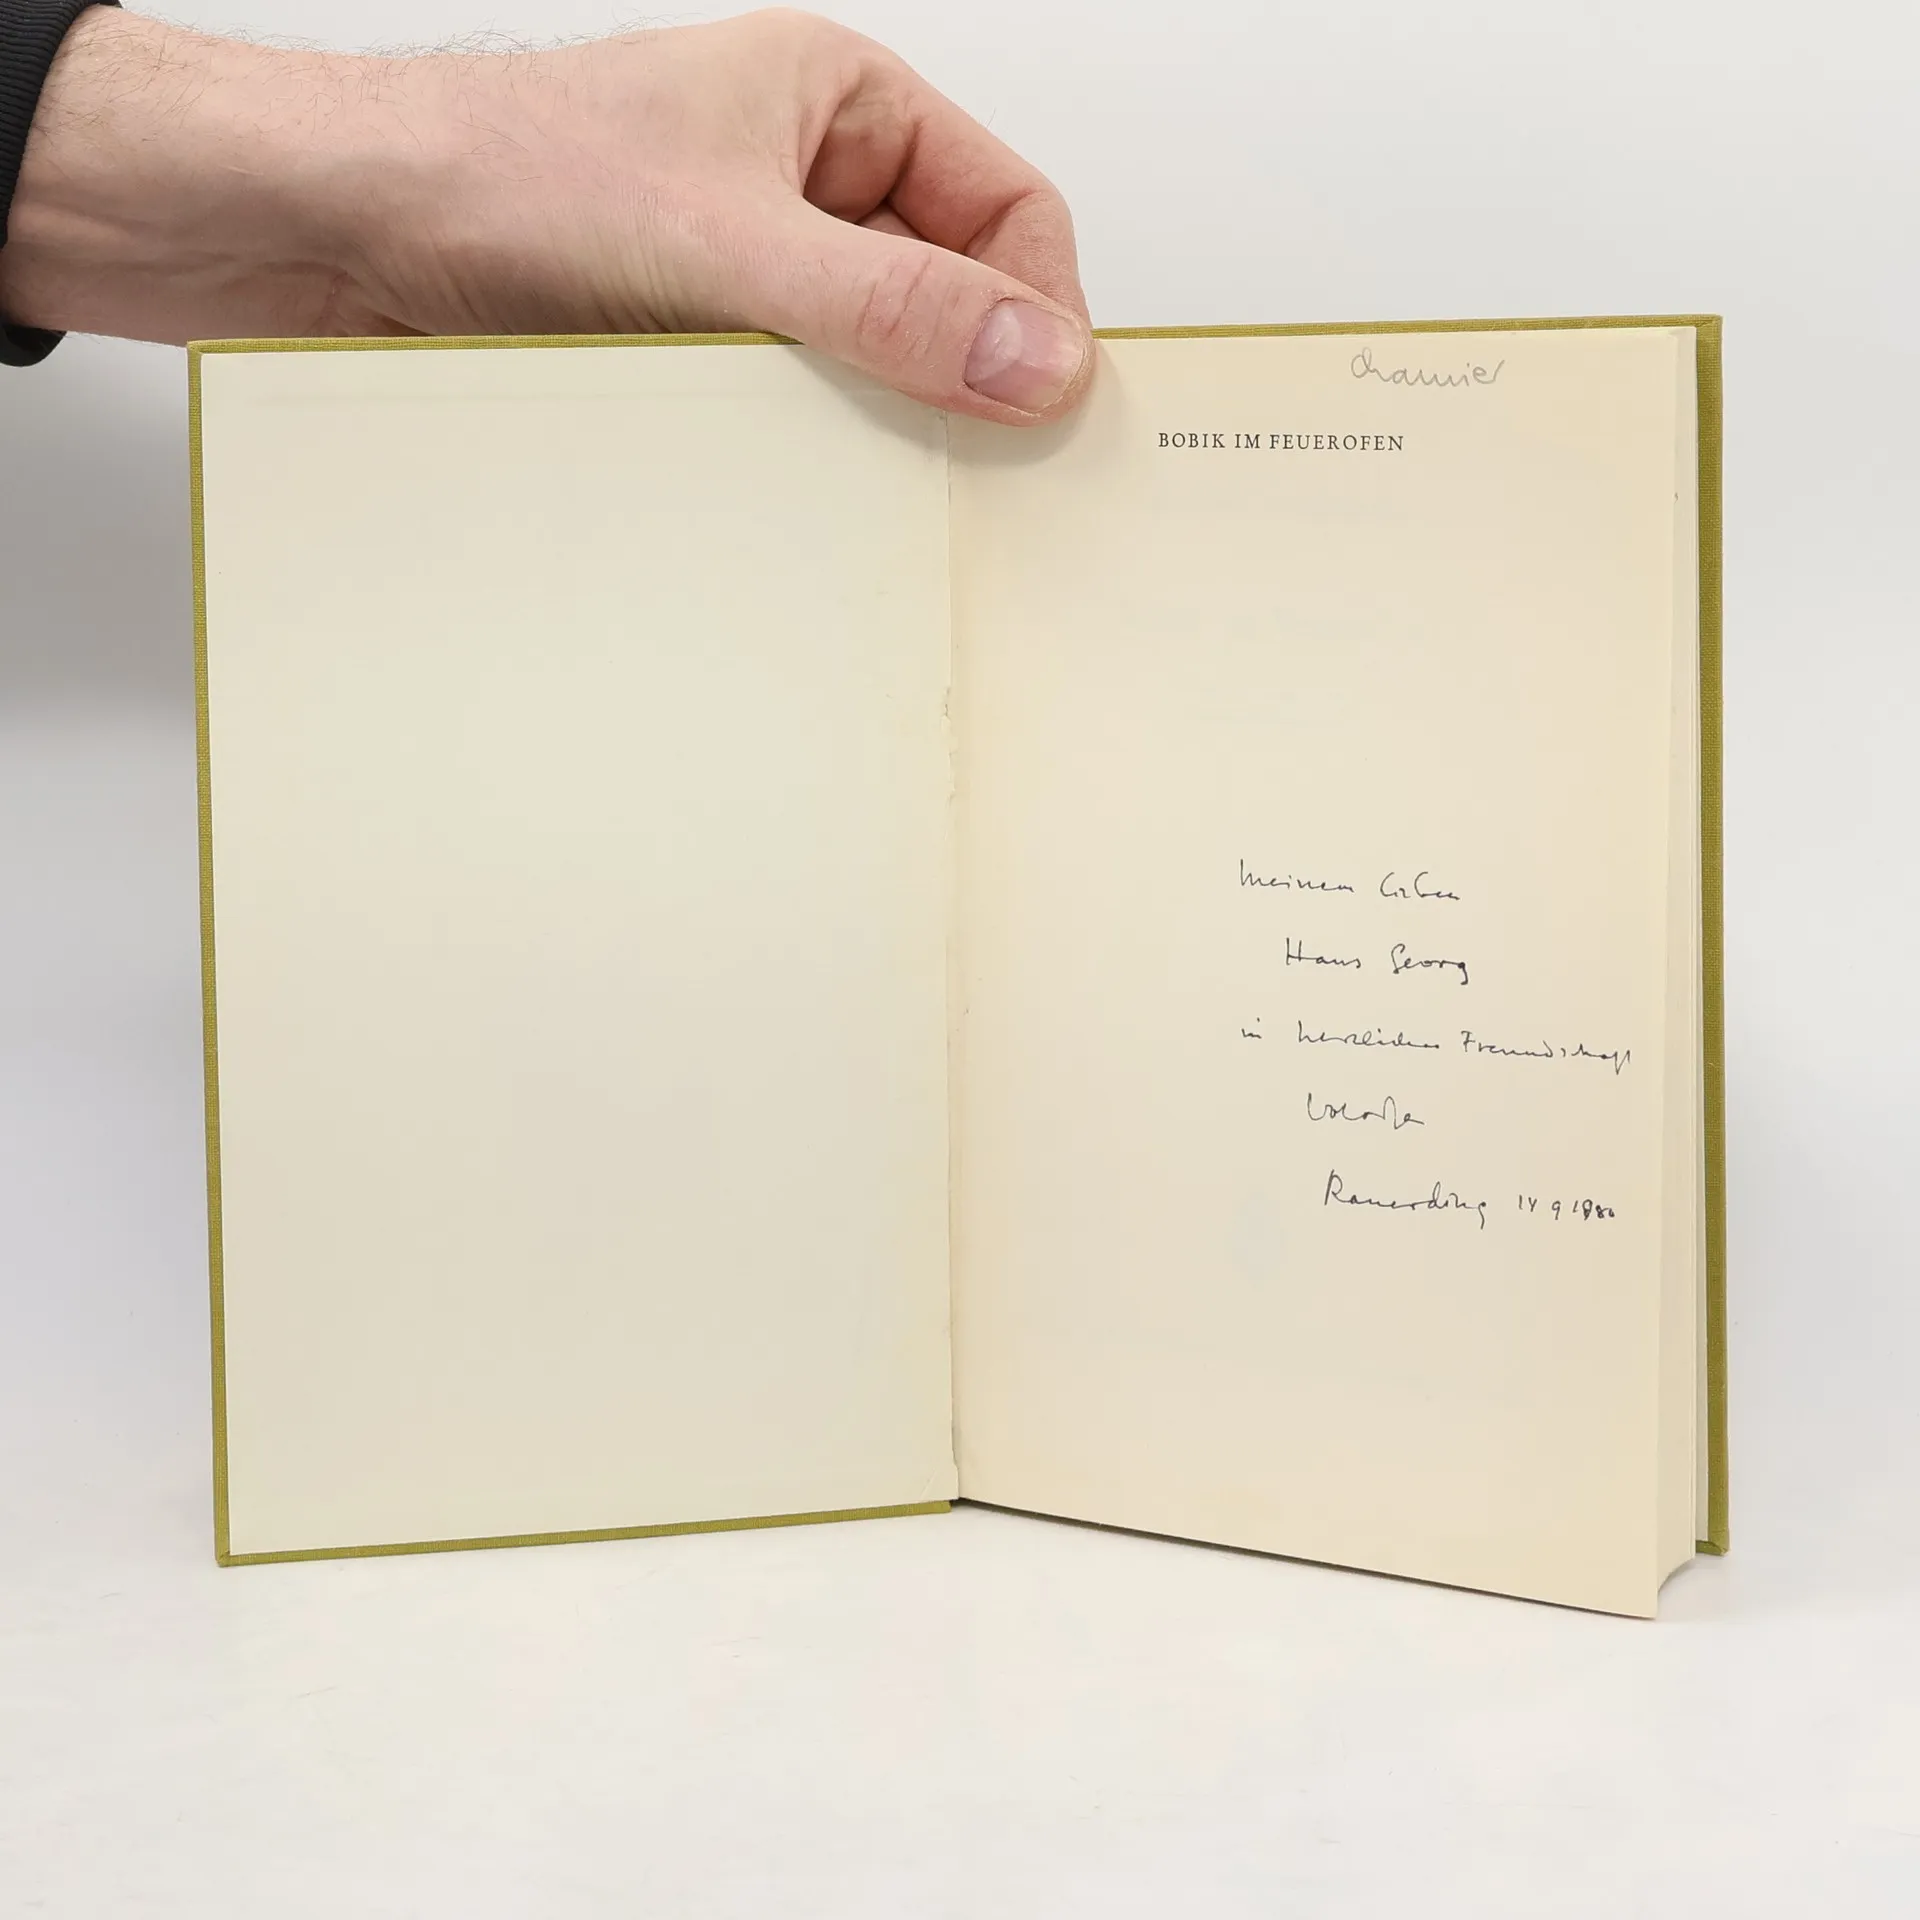 BOBIK IM FEUEROFEN
Meinem lieben
Hans Georg
in herzlicher Freundschaft
Wolodja
Rauerding 14 9 1980